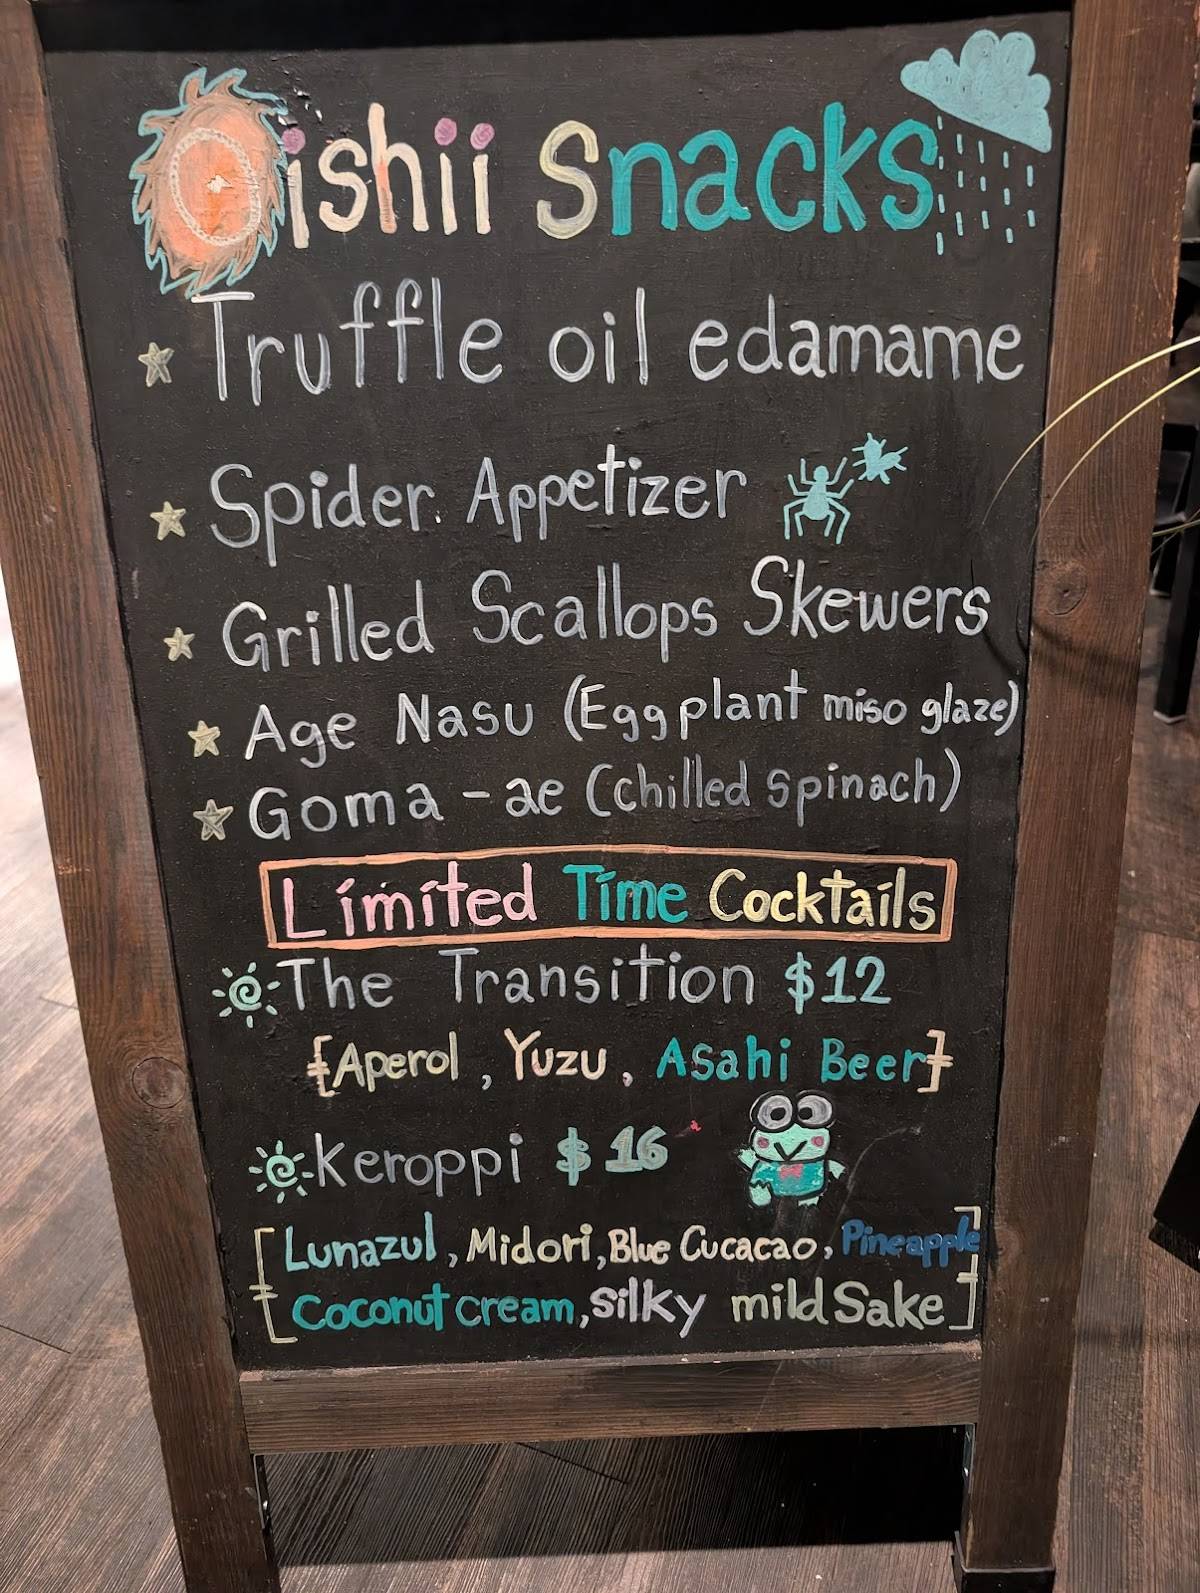 Oishii Snacks
Truffle oil edamame
Spider Appetizer
Grilled Scallops Skewers
Age Nasu (Eggplant miso glaze)
Goma-ae (chilled spinach)
Limited Time Cocktails
The Transition $12
[Aperol, Yuzu, Asahi Beer]
Keroppi $16
[Lunazul, Midori, Blue Cucacao, Pineapple
Coconut cream, silky mild Sake]